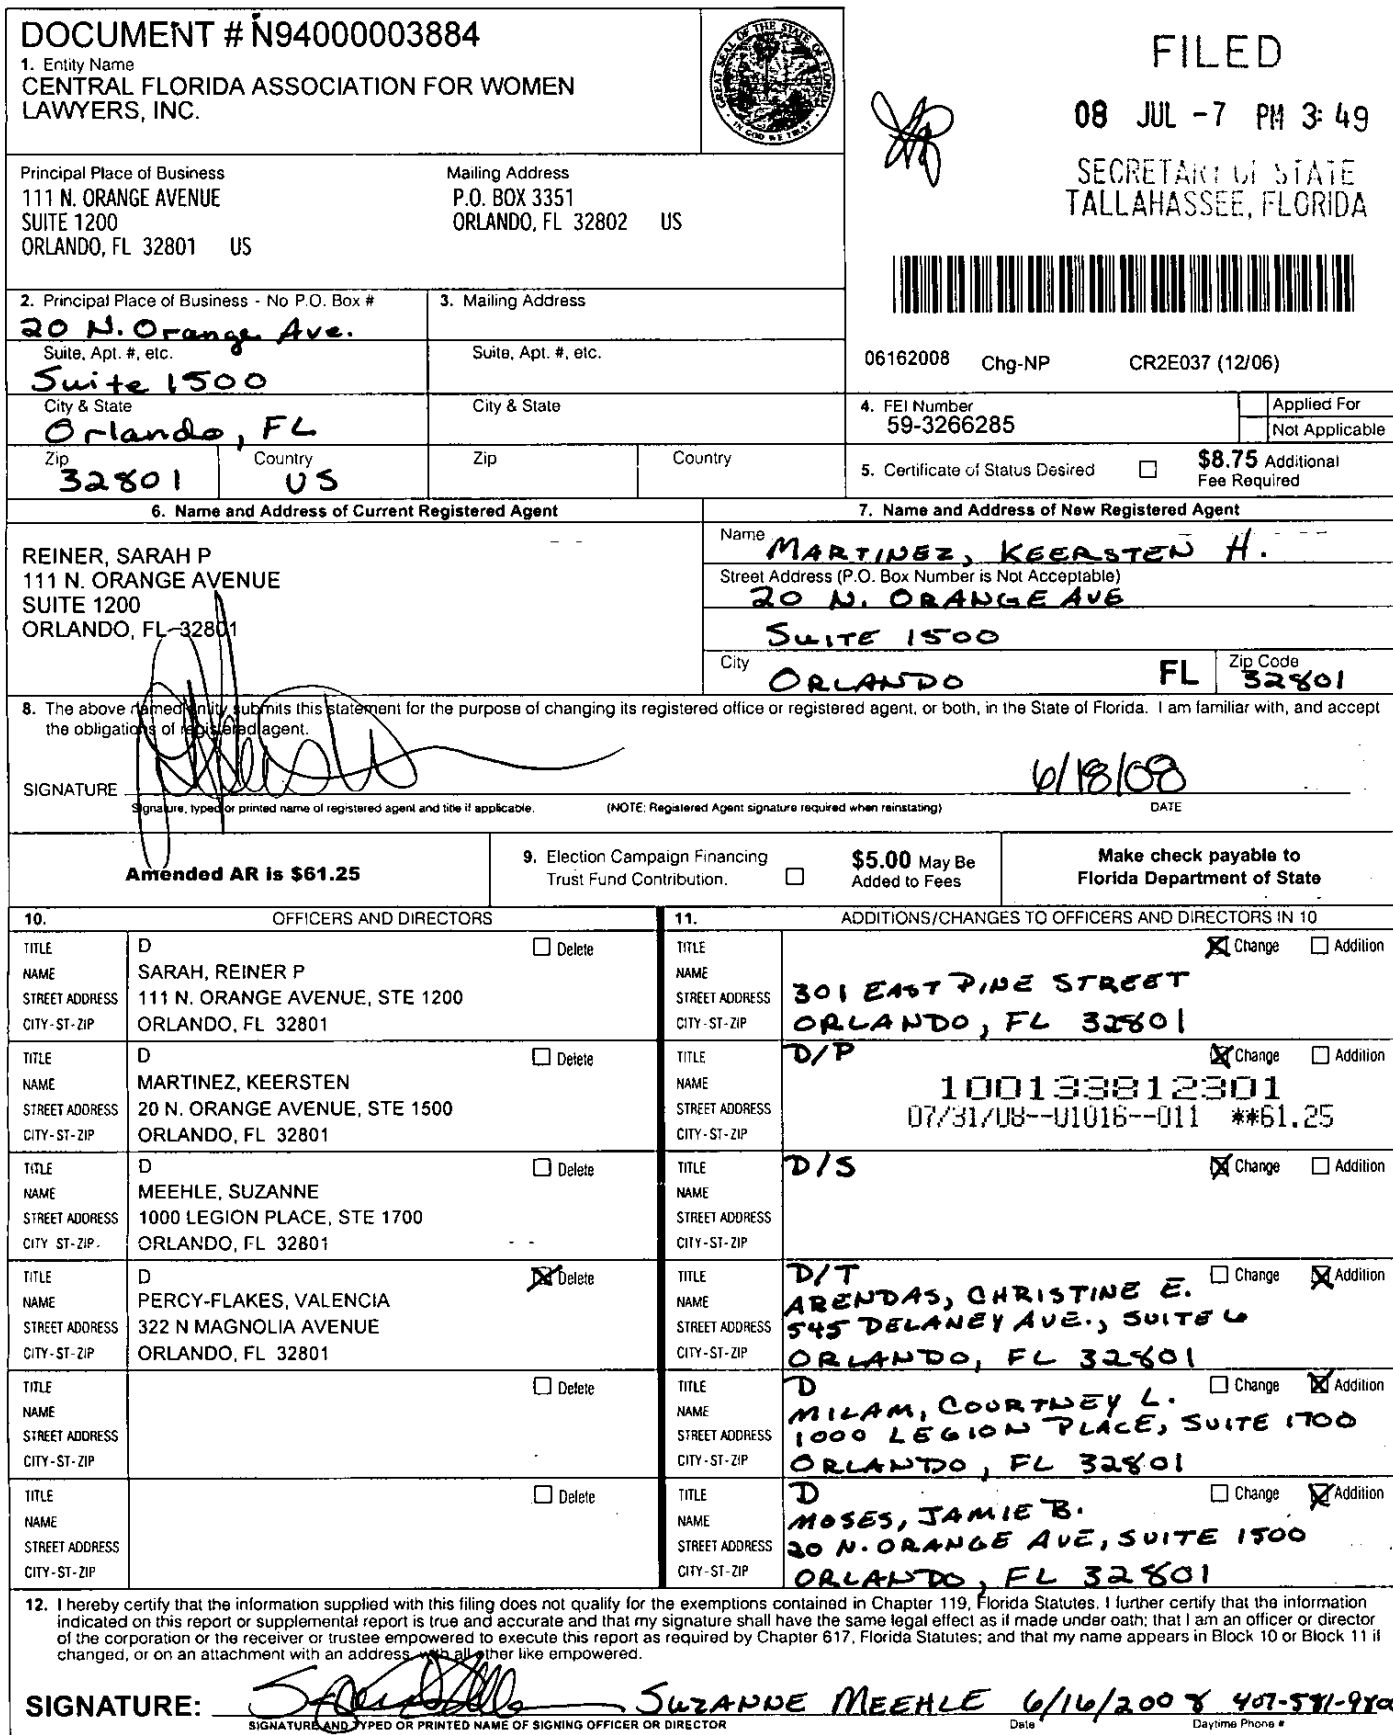 DOCUMENT # N94000003884
1. Entity Name
CENTRAL FLORIDA ASSOCIATION FOR WOMEN
LAWYERS, INC.
GREAT SEAL OF THE STATE OF FLORIDA
IN GOD WE TRUST
FILED
08 JUL -7 PM 3:49
SECRETARY OF STATE
TALLAHASSEE, FLORIDA
Principal Place of Business
111 N. ORANGE AVENUE
SUITE 1200
ORLANDO, FL 32801 US
Mailing Address
P.O. BOX 3351
ORLANDO, FL 32802 US
2. Principal Place of Business - No P.O. Box #
20 N. Orange Ave.
3. Mailing Address
Suite, Apt. #, etc.
Suite 1500
Suite, Apt. #, etc.
06162008 Chg-NP CR2E037 (12/06)
City & State
Orlando, FL
City & State
4. FEI Number
59-3266285
Applied For
Not Applicable
Zip
32801
Country
US
Zip
Country
5. Certificate of Status Desired
$8.75 Additional
Fee Required
6. Name and Address of Current Registered Agent
REINER, SARAH P
111 N. ORANGE AVENUE
SUITE 1200
ORLANDO, FL 32801
7. Name and Address of New Registered Agent
Name MARTINEZ, KEERSTEN H.
Street Address (P.O. Box Number is Not Acceptable)
20 N. ORANGE AVE
SUITE 1500
City ORLANDO FL Zip Code 32801
8. The above named entity submits this statement for the purpose of changing its registered office or registered agent, or both, in the State of Florida. I am familiar with, and accept
the obligations of registered agent.
SIGNATURE 6/18/08
Signature, typed or printed name of registered agent and title if applicable. (NOTE: Registered Agent signature required when reinstating) DATE
Amended AR is $61.25
9. Election Campaign Financing
Trust Fund Contribution.
$5.00 May Be
Added to Fees
Make check payable to
Florida Department of State
10. OFFICERS AND DIRECTORS
11. ADDITIONS/CHANGES TO OFFICERS AND DIRECTORS IN 10
TITLE D Delete
NAME SARAH, REINER P
STREET ADDRESS 111 N. ORANGE AVENUE, STE 1200
CITY-ST-ZIP ORLANDO, FL 32801
TITLE Change Addition
NAME
STREET ADDRESS 301 EAST PINE STREET
CITY-ST-ZIP ORLANDO, FL 32801
TITLE D Delete
NAME MARTINEZ, KEERSTEN
STREET ADDRESS 20 N. ORANGE AVENUE, STE 1500
CITY-ST-ZIP ORLANDO, FL 32801
TITLE D/P Change Addition
NAME 100133812301
STREET ADDRESS 07/31/08--01016--011 **61.25
CITY-ST-ZIP
TITLE D Delete
NAME MEEHLE, SUZANNE
STREET ADDRESS 1000 LEGION PLACE, STE 1700
CITY ST-ZIP ORLANDO, FL 32801
TITLE D/S Change Addition
NAME
STREET ADDRESS
CITY-ST-ZIP
TITLE D Delete
NAME PERCY-FLAKES, VALENCIA
STREET ADDRESS 322 N MAGNOLIA AVENUE
CITY-ST-ZIP ORLANDO, FL 32801
TITLE D/T Change Addition
NAME ARENDAS, CHRISTINE E.
STREET ADDRESS 545 DELANEY AVE., SUITE 6
CITY-ST-ZIP ORLANDO, FL 32801
TITLE Delete
NAME
STREET ADDRESS
CITY-ST-ZIP
TITLE D Change Addition
NAME MILAM, COURTNEY L.
STREET ADDRESS 1000 LEGION PLACE, SUITE 1700
CITY-ST-ZIP ORLANDO, FL 32801
TITLE Delete
NAME
STREET ADDRESS
CITY-ST-ZIP
TITLE D Change Addition
NAME MOSES, JAMIE B.
STREET ADDRESS 20 N. ORANGE AVE, SUITE 1500
CITY-ST-ZIP ORLANDO, FL 32801
12. I hereby certify that the information supplied with this filing does not qualify for the exemptions contained in Chapter 119, Florida Statutes. I further certify that the information
indicated on this report or supplemental report is true and accurate and that my signature shall have the same legal effect as if made under oath; that I am an officer or director
of the corporation or the receiver or trustee empowered to execute this report as required by Chapter 617, Florida Statutes; and that my name appears in Block 10 or Block 11 if
changed, or on an attachment with an address, with all other like empowered.
SIGNATURE: SUZANNE MEEHLE 6/16/2008 407-581-980
SIGNATURE AND TYPED OR PRINTED NAME OF SIGNING OFFICER OR DIRECTOR Date Daytime Phone #